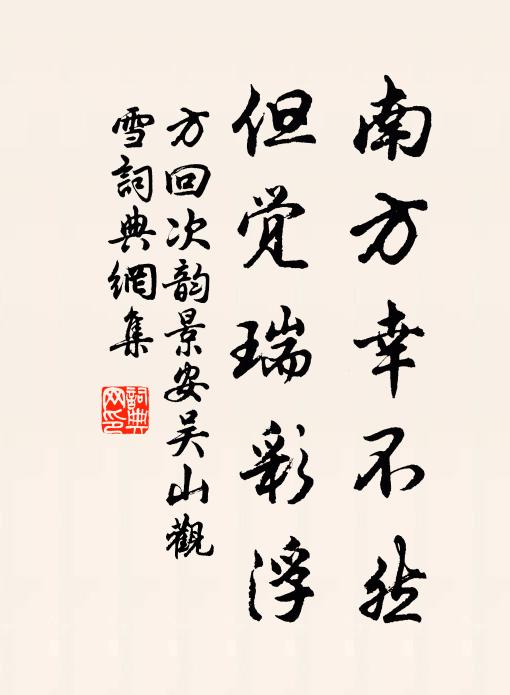 南方幸不然
但觉瑞彩浮
方回次韵景安吴山觀
雪詞典網集
詞典网印